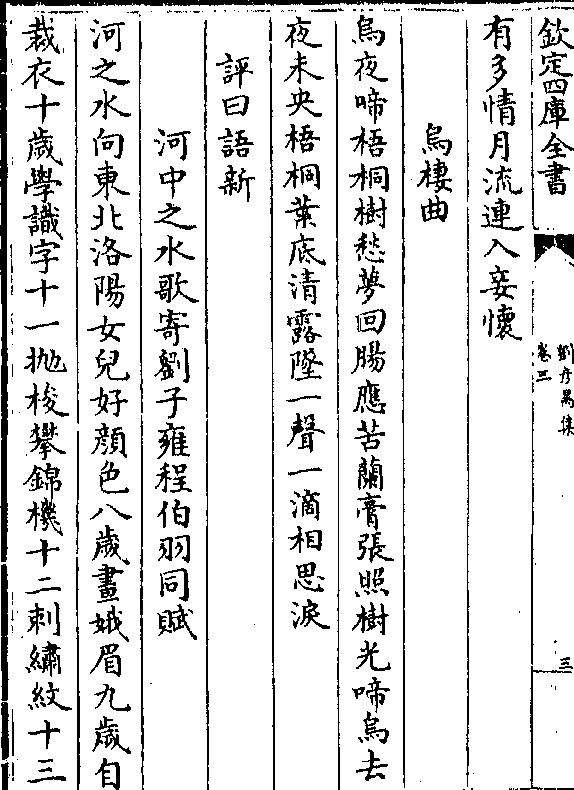 欽定四庫全書
劉彥昺集
卷三
三
有多情月流連入妾懷
烏棲曲
烏夜啼梧桐樹愁夢回腸應苦蘭膏張照樹光啼烏去
夜未央梧桐葉底清露墜一聲一滴相思淚
評曰語新
河中之水歌寄劉子雍程伯羽同賦
河之水向東北洛陽女兒好顏色八歲畫娥眉九歲自
裁衣十歲學識字十一拋梭攀錦機十二刺繡紋十三